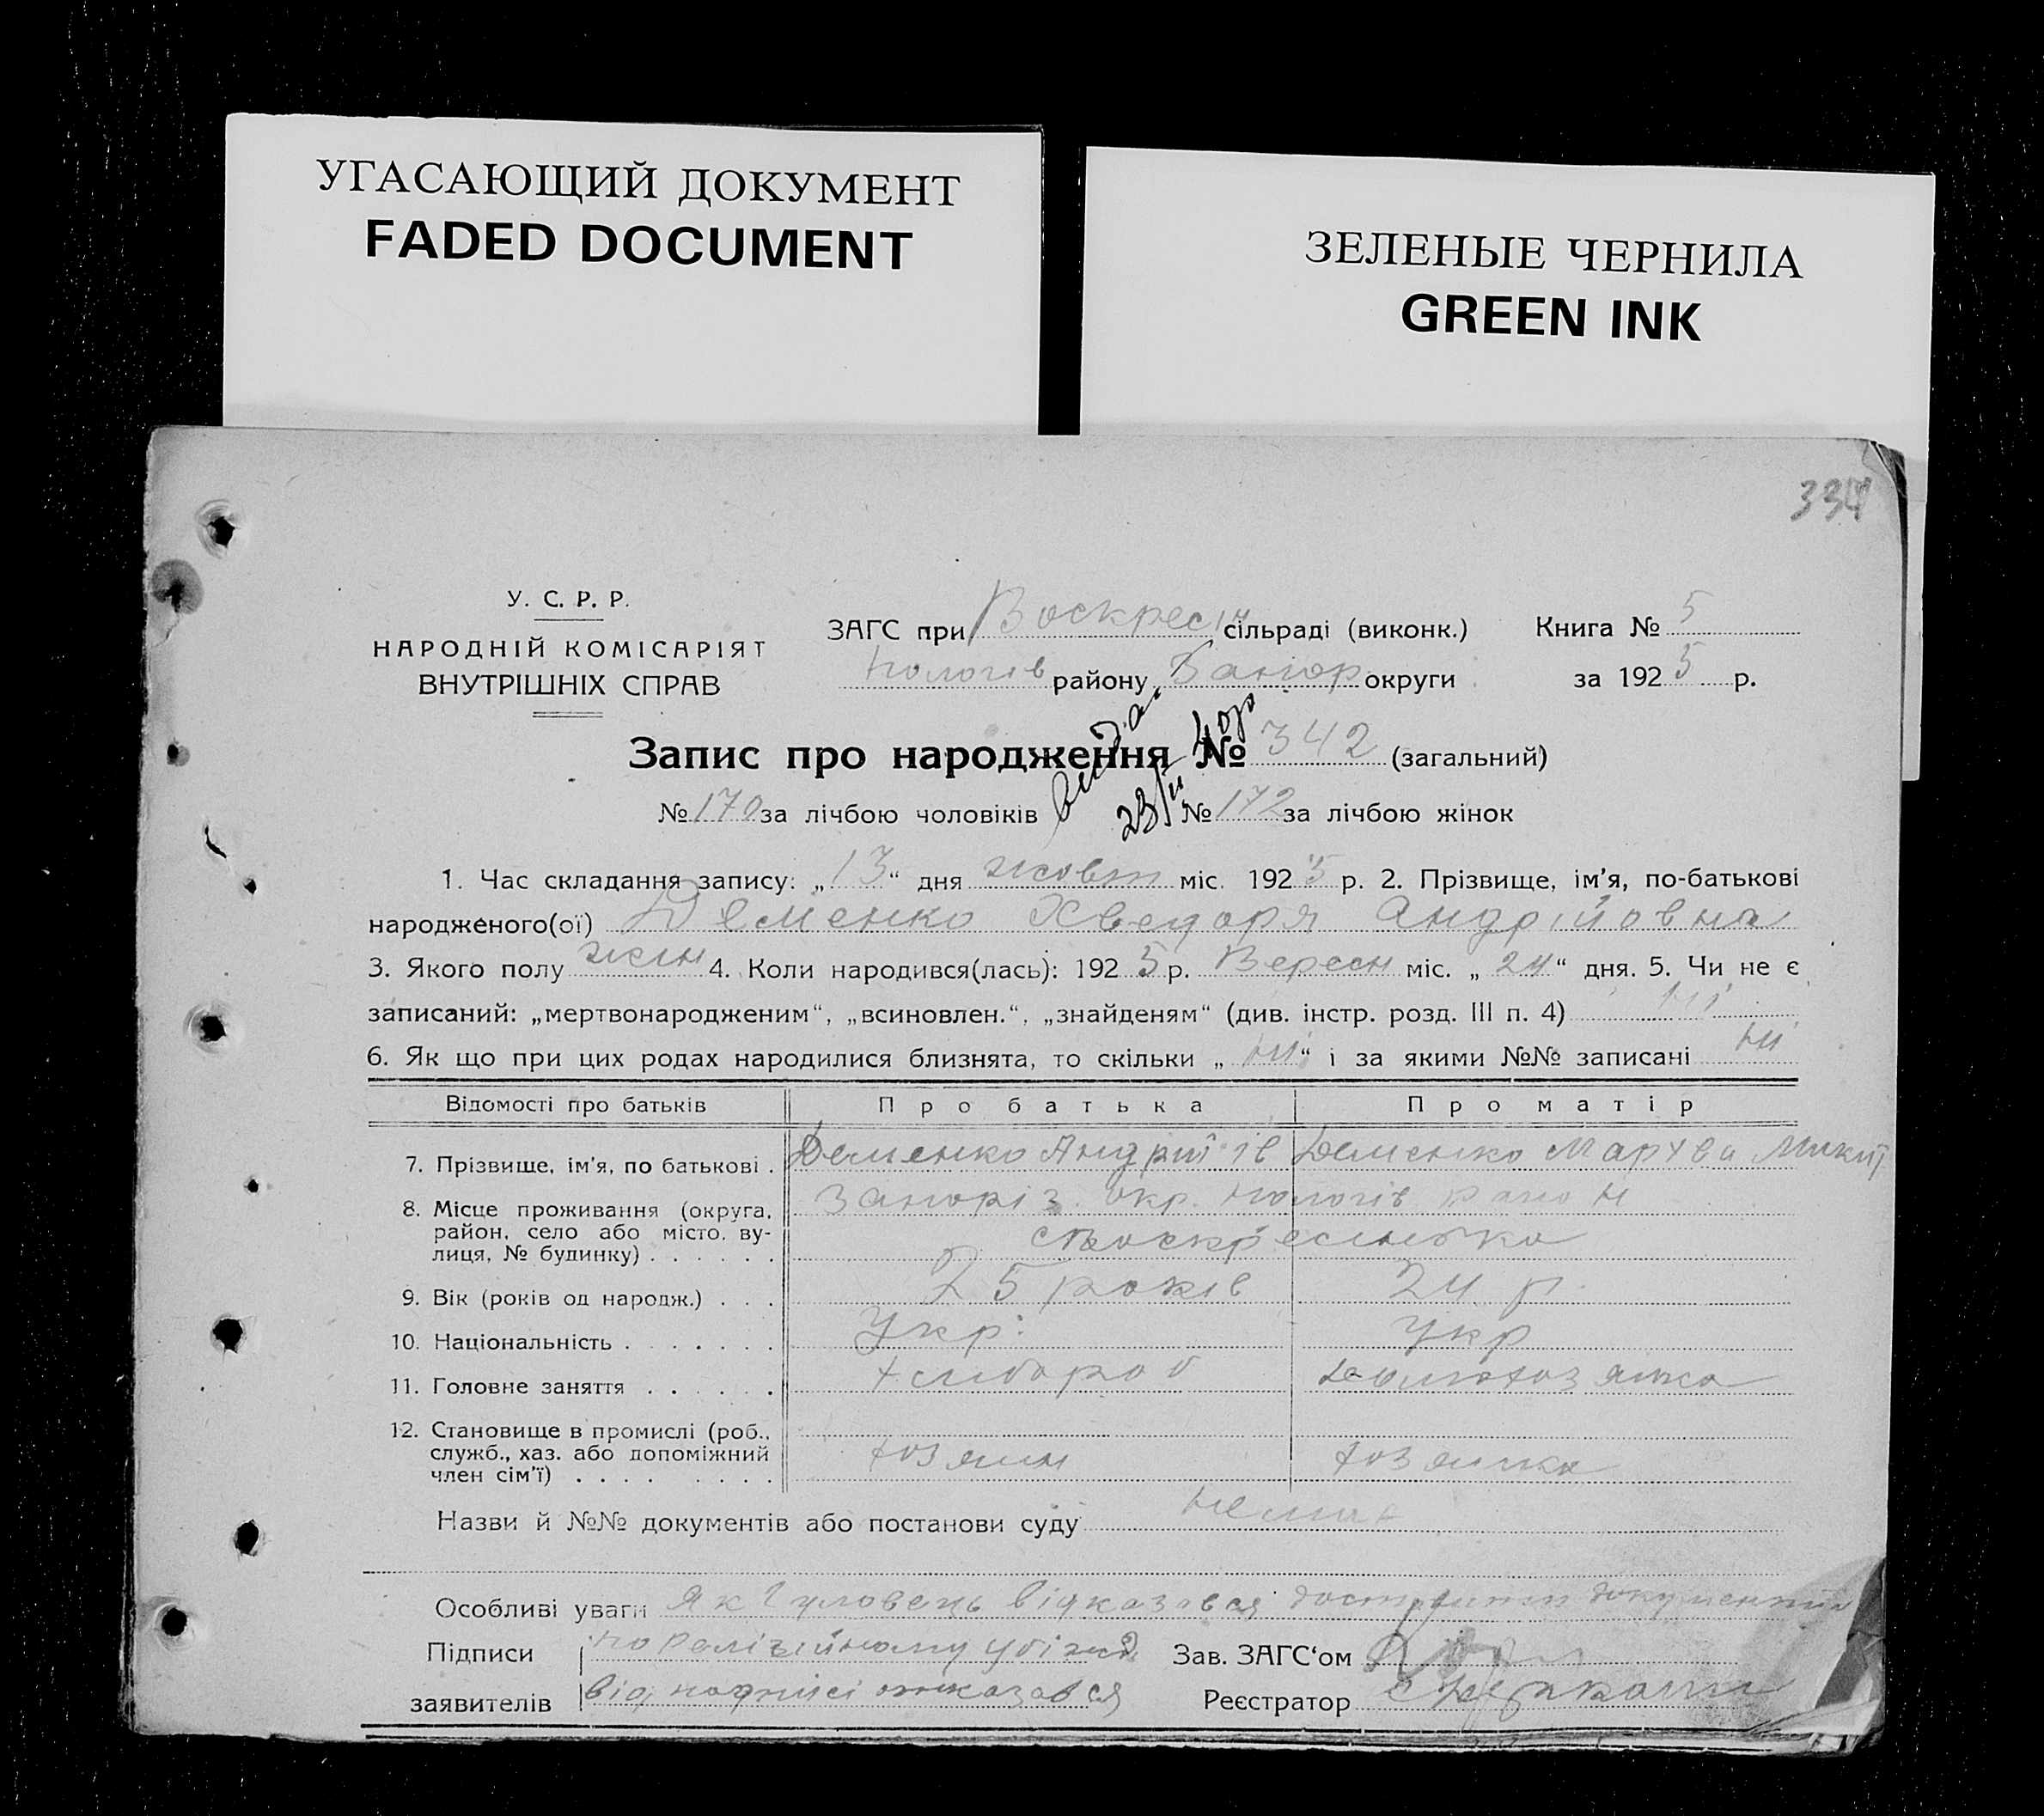 УГАСАЮЩИЙ ДОКУМЕНТ
FADED DOCUMENT
ЗЕЛЕНЫЕ ЧЕРНИЛА
GREEN INK
334
У. С. Р. Р.
НАРОДНІЙ КОМІСАРІЯТ
ВНУТРІШНІХ СПРАВ
ЗАГС при Воскресін сільраді (виконк.) Книга № 5
Пологів району, Запор округи за 1925 р.
Запис про народження № 342 (загальний)
№ 170 за лічбою чоловіків № 172 за лічбою жінок
1. Час складання запису: „13“ дня жовт міс. 1925 р. 2. Прізвище, ім’я, по-батькові
народженого(ої) Деменко Хведоря Андрійовна
3. Якого полу жін 4. Коли народився(лась): 1925 р. Вересн міс. „24“ дня. 5. Чи не є
записаний: „мертвонародженим“, „всиновлен.“, „знайденям“ (див. інстр. розд. III п. 4) ні
6. Як що при цих родах народилися близнята, то скільки „ні“ і за якими №№ записані ні
Відомості про батьків Про батька Про матір
7. Прізвище, ім’я, по батькові . Деменко Андрій Ів Деменко Мархва Микиї
8. Місце проживання (округа, Запоріз. окр. Пологів район
район, село або місто, ву-
лиця, № будинку) . . . . . . с Воскресинька
9. Вік (років од народж.) . . . 25 років 24 р
10. Національність . . . . . . . Укр: Укр
11. Головне заняття . . . . . . хлібороб домохозяйка
12. Становище в промислі (роб.,
служб., хаз. або допоміжний
член сім’ї) . . . . . . . . хозяин хозяйка
Назви й №№ документів або постанови суду нема
Особливі уваги Як відказався документи
Підписи по релігійному убіжд Зав. ЗАГС‘ом
заявителів від подписі отказався Реєстратор